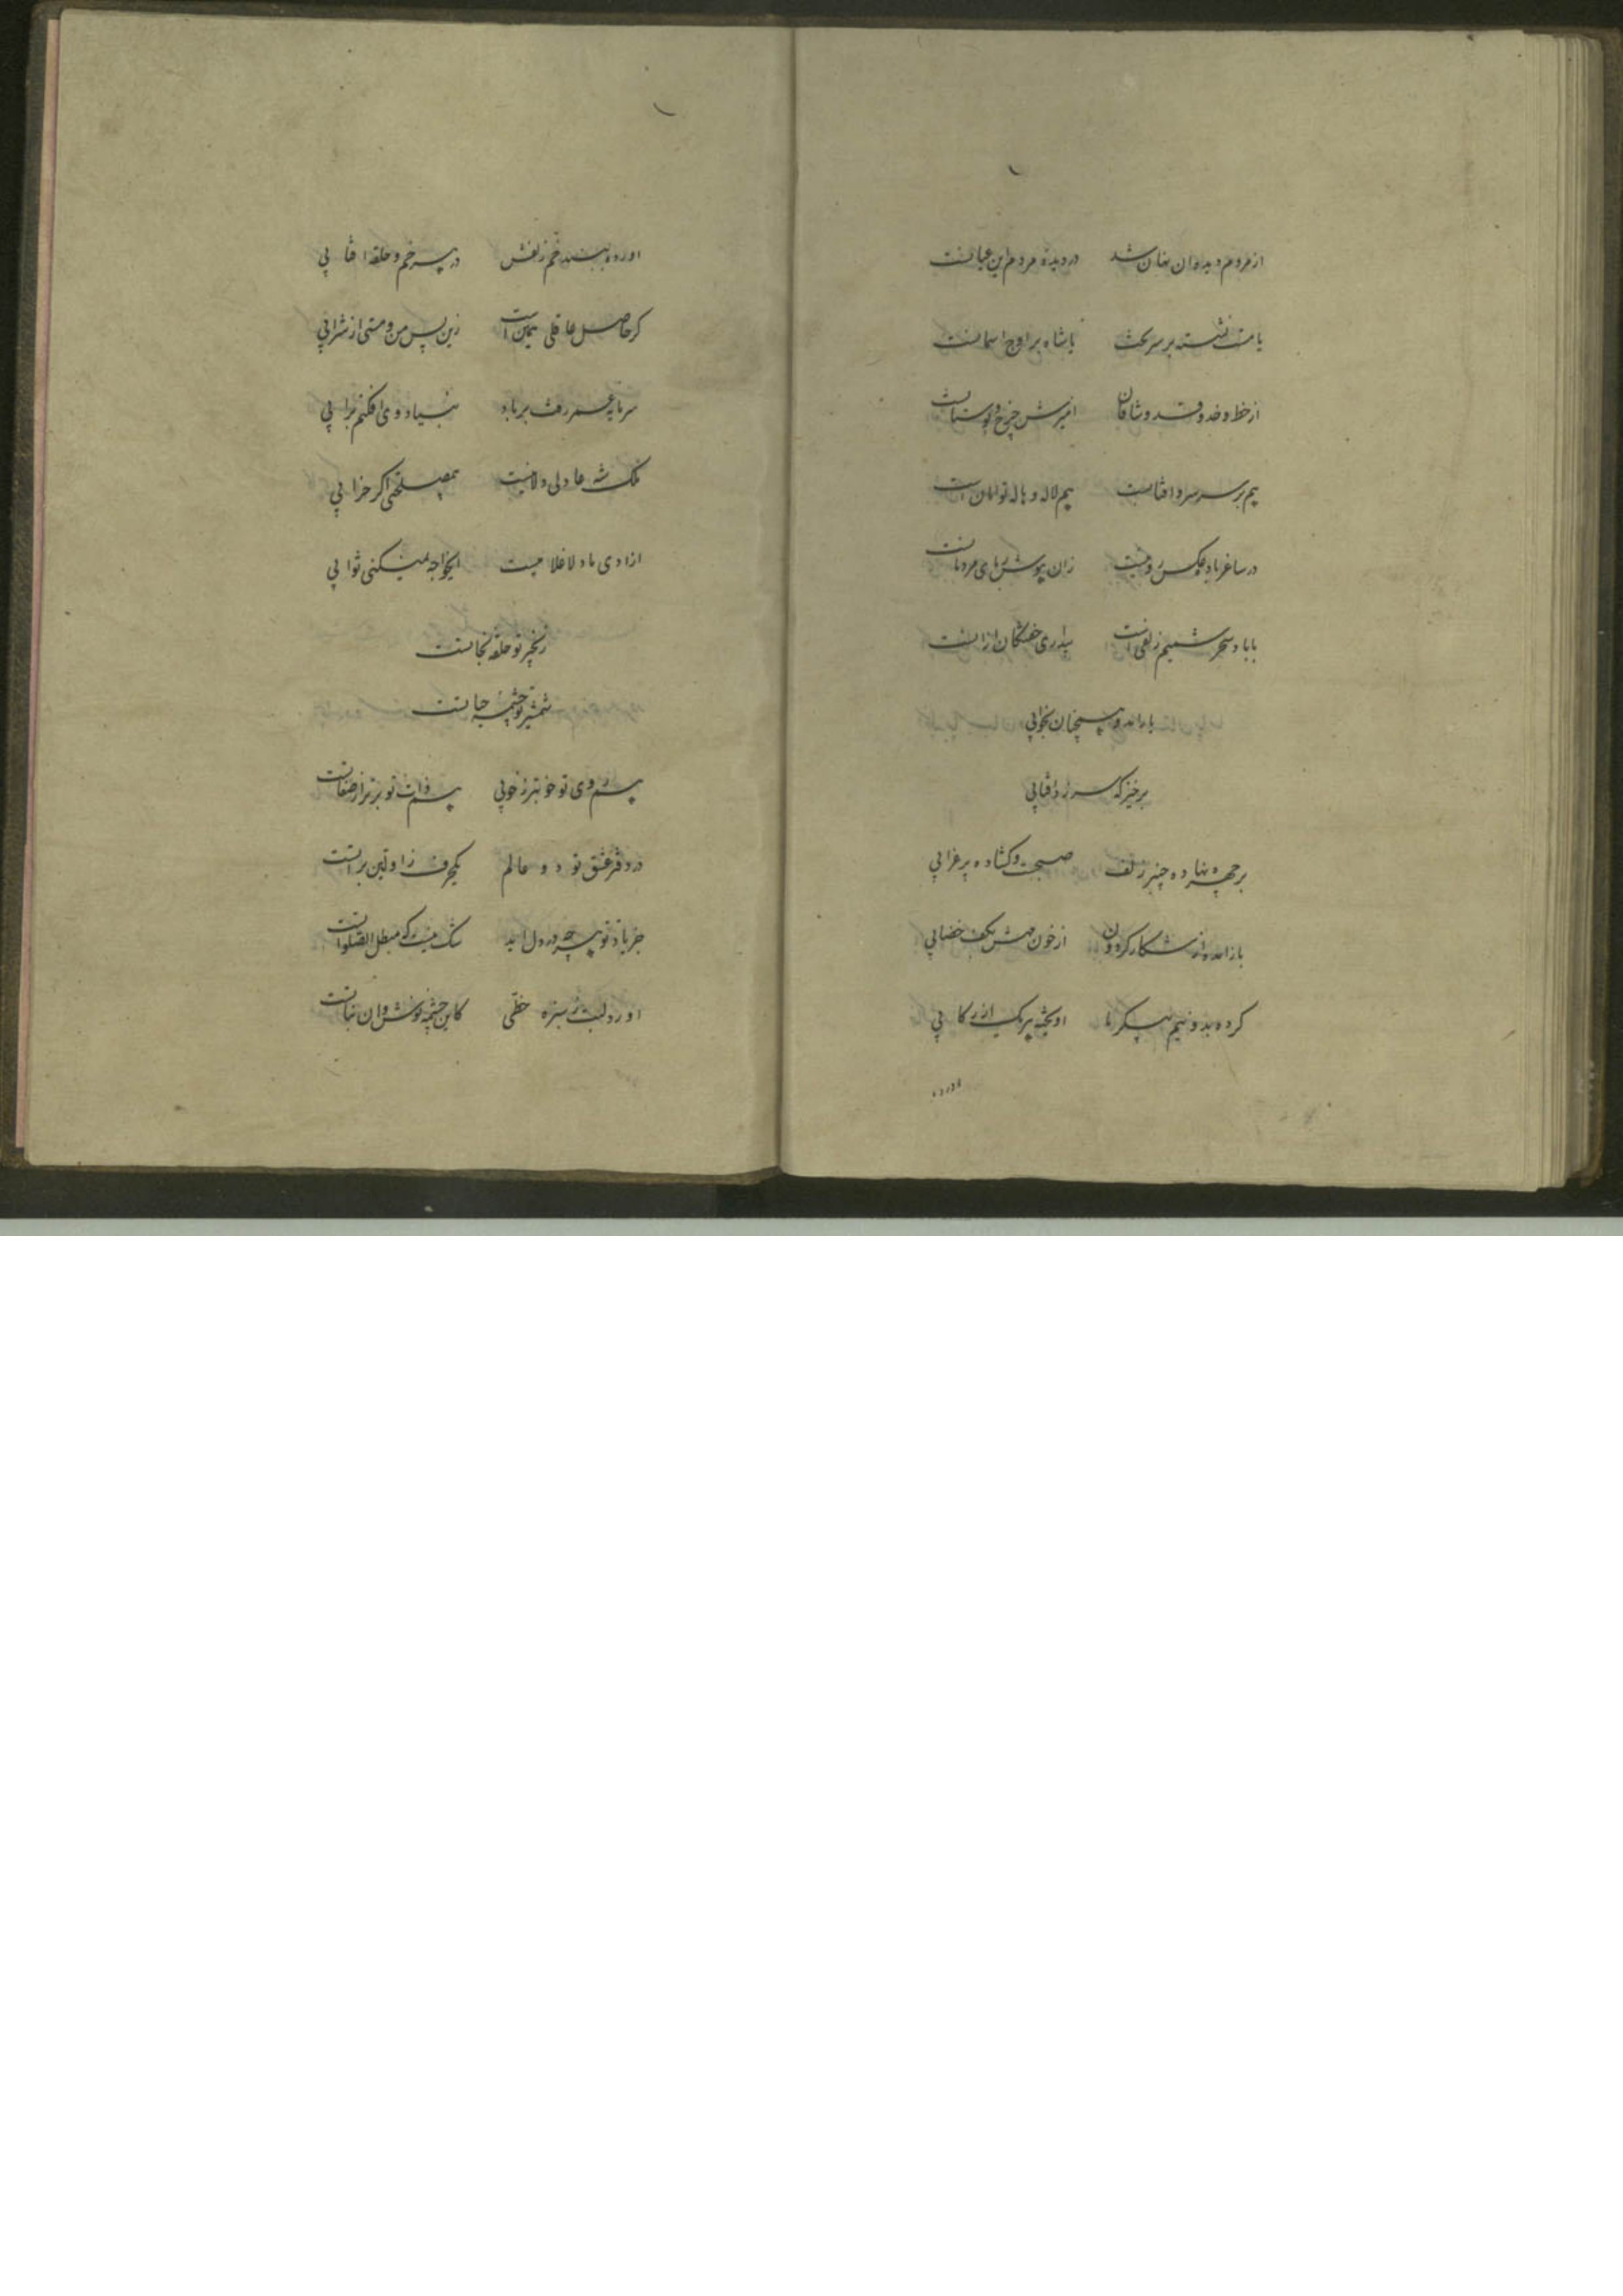 از مردم دیده آن نهان شد در دیده مردم این عیانست
یا مت نشسته بر سر تخت یا شاه بر اوج آسمانست
از خط و خد و قد وشاقان
هم بر سر سرو آفتابست هم لاله و هاله توامان است
در ساغر باده عکس رویست زان
با باد سحر شمیم زلفی است بیداری خفتگان از آنست
یار آمد و همچنان بخوابی
برخیز که سر زد آفتابی
بر چهره نهاده چنبر زلف صبحست و گشاده پر غرابی
باز آمده از شکار گردون از خون منش بکف خضابی
کرده بدو نیم پیکر ما آویخته هر یک از رکابی
آورده
آورده ببند خم زلفش در هر خم و حلقه آفتابی
گر حاصل عاقلی همین است زین پس من و مستی از شرابی
سرمایه عمر رفت بر باد بنیاد وی افکنم بر آبی
ملک شه عادلی دلا نیست بمصلحتی اگر خرابی
آزادی ما دلا غلامیست ایخواجه نمیکنی ثوابی
زنجیر تو حلقه نجاتست
شمشیر تو چشمه حیاتست
هم روی تو خوبتر ز خوبی هم ذات تو برتر از صفاتست
در دفتر عشق تو دو عالم یکحرف ز اولین براتست
جز یاد تو هر چه در دل آید شک نیست که مبطل الصلواتست
آورد لبت ز سبزه خطی کاین چشمه نوش و آن نباتست